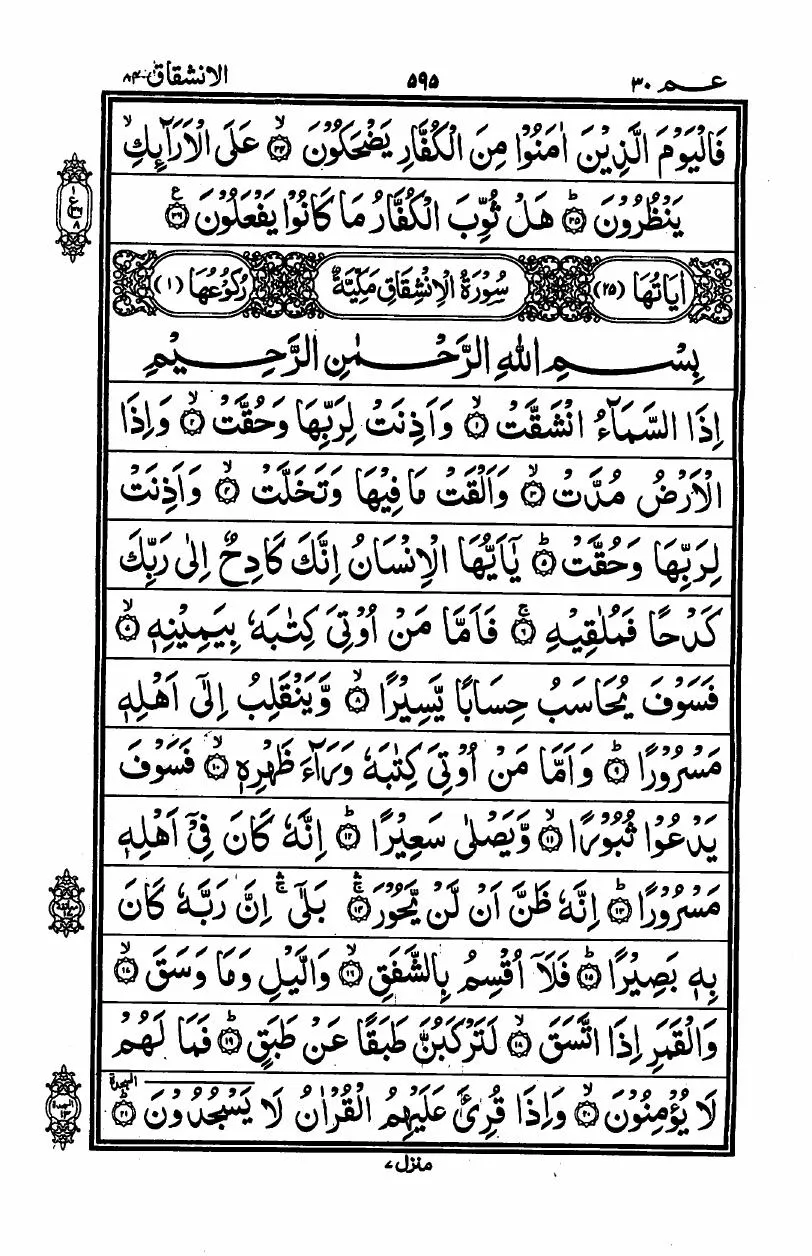 عــم ٣٠ ٥٩٥ الانشقاق ٨٤
فَالْيَوْمَ الَّذِيْنَ اٰمَنُوْا مِنَ الْكُفَّارِ يَضْحَكُوْنَ ۙ‏﴿۳۴﴾ عَلَى الْاَرَآئِكِ ۙ
يَنْظُرُوْنَ ؕ‏﴿۳۵﴾ هَلْ ثُوِّبَ الْكُفَّارُ مَا كَانُوْا يَفْعَلُوْنَ ﴿۳۶﴾ع
اٰيَاتُهَا (٢٥) سُوْرَةُ الْاِنْشِقَاقِ مَكِّيَّةٌ رُكُوْعُهَا (١)
بِسْمِ اللّٰهِ الرَّحْمٰنِ الرَّحِيْمِ
اِذَا السَّمَآءُ انْشَقَّتْ ۙ‏﴿۱﴾ وَاَذِنَتْ لِرَبِّهَا وَحُقَّتْ ۙ‏﴿۲﴾ وَاِذَا
الْاَرْضُ مُدَّتْ ۙ‏﴿۳﴾ وَاَلْقَتْ مَا فِيْهَا وَتَخَلَّتْ ۙ‏﴿۴﴾ وَاَذِنَتْ
لِرَبِّهَا وَحُقَّتْ ؕ‏﴿۵﴾ يٰۤاَيُّهَا الْاِنْسَانُ اِنَّكَ كَادِحٌ اِلٰى رَبِّكَ
كَدْحًا فَمُلٰقِيْهِ ۚ‏﴿۶﴾ فَاَمَّا مَنْ اُوْتِىَ كِتٰبَهٗ بِيَمِيْنِهٖ ۙ‏﴿۷﴾
فَسَوْفَ يُحَاسَبُ حِسَابًا يَّسِيْرًا ۙ‏﴿۸﴾ وَّيَنْقَلِبُ اِلٰٓى اَهْلِهٖ
مَسْرُوْرًا ؕ‏﴿۹﴾ وَاَمَّا مَنْ اُوْتِىَ كِتٰبَهٗ وَرَآءَ ظَهْرِهٖ ۙ‏﴿۱۰﴾ فَسَوْفَ
يَدْعُوْا ثُبُوْرًا ۙ‏﴿۱۱﴾ وَّيَصْلٰى سَعِيْرًا ؕ‏﴿۱۲﴾ اِنَّهٗ كَانَ فِىْۤ اَهْلِهٖ
مَسْرُوْرًا ؕ‏﴿۱۳﴾ اِنَّهٗ ظَنَّ اَنْ لَّنْ يَّحُوْرَ ۛۚ‏﴿۱۴﴾ بَلٰٓى ۛۚ اِنَّ رَبَّهٗ كَانَ
بِهٖ بَصِيْرًا ؕ‏﴿۱۵﴾ فَلَاۤ اُقْسِمُ بِالشَّفَقِ ۙ‏﴿۱۶﴾ وَالَّيْلِ وَمَا وَسَقَ ۙ‏﴿۱۷﴾
وَالْقَمَرِ اِذَا اتَّسَقَ ۙ‏﴿۱۸﴾ لَتَرْكَبُنَّ طَبَقًا عَنْ طَبَقٍ ؕ‏﴿۱۹﴾ فَمَا لَهُمْ
لَا يُؤْمِنُوْنَ ۙ‏﴿۲۰﴾ وَاِذَا قُرِئَ عَلَيْهِمُ الْقُرْاٰنُ لَا يَسْجُدُوْنَ ؕ‏﴿۲۱﴾ السجدة
منزل ٧